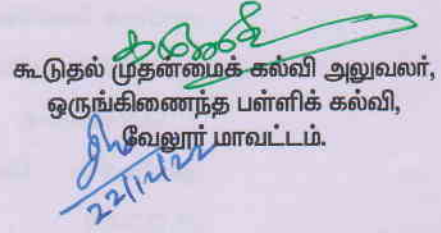 கூடுதல் முதன்மைக் கல்வி அலுவலர்,
ஒருங்கிணைந்த பள்ளிக் கல்வி,
வேலூர் மாவட்டம்.
22/12/22